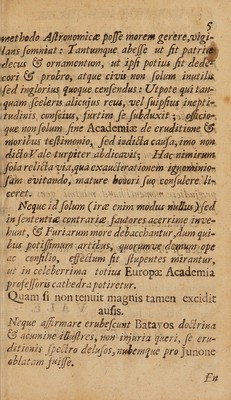 5
methodo Astronomicæ posse morem gerere, vigi-
lans somniat: Tantumque abesse ut sit patriæ
decus & ornamentum, ut ipsi potius sit dede-
cori & probro, atque civis non solum inutilis
sed inglorius quoque censendus: Utpote qui tan-
quam sceleris alicujus reus, vel suipsius inepti-
tudinis conscius, furtim se subduxit; officio-
que non solum sine Academiæ de eruditione &
moribus testimonio, sed indicta causa, imo non
dicto Vale turpiter abdicavit; Hac nimirum
sola relicta via, qua exauctorationem ignominio-
sam evitando, mature honori suo consulere li-
ceret.
Neque id solum (iræ enim modus nullus) sed
in sententiæ contrariæ fautores acerrime inve-
hunt, & Furiarum more debacchantur, dum qui-
bus potissimum artibus, quorumve demum ope
ac consilio, effectum sit stupentes mirantur,
ut in celeberrima totius Europæ Academia
professoris cathedra potiretur.
Quam si non tenuit magnis tamen excidit
ausis.
Neque affirmare erubescunt Batavos doctrina
& acumine illustres, non injuria queri, se eru-
ditionis spectro delusos, nubemque pro Junone
oblatam fuisse.
En